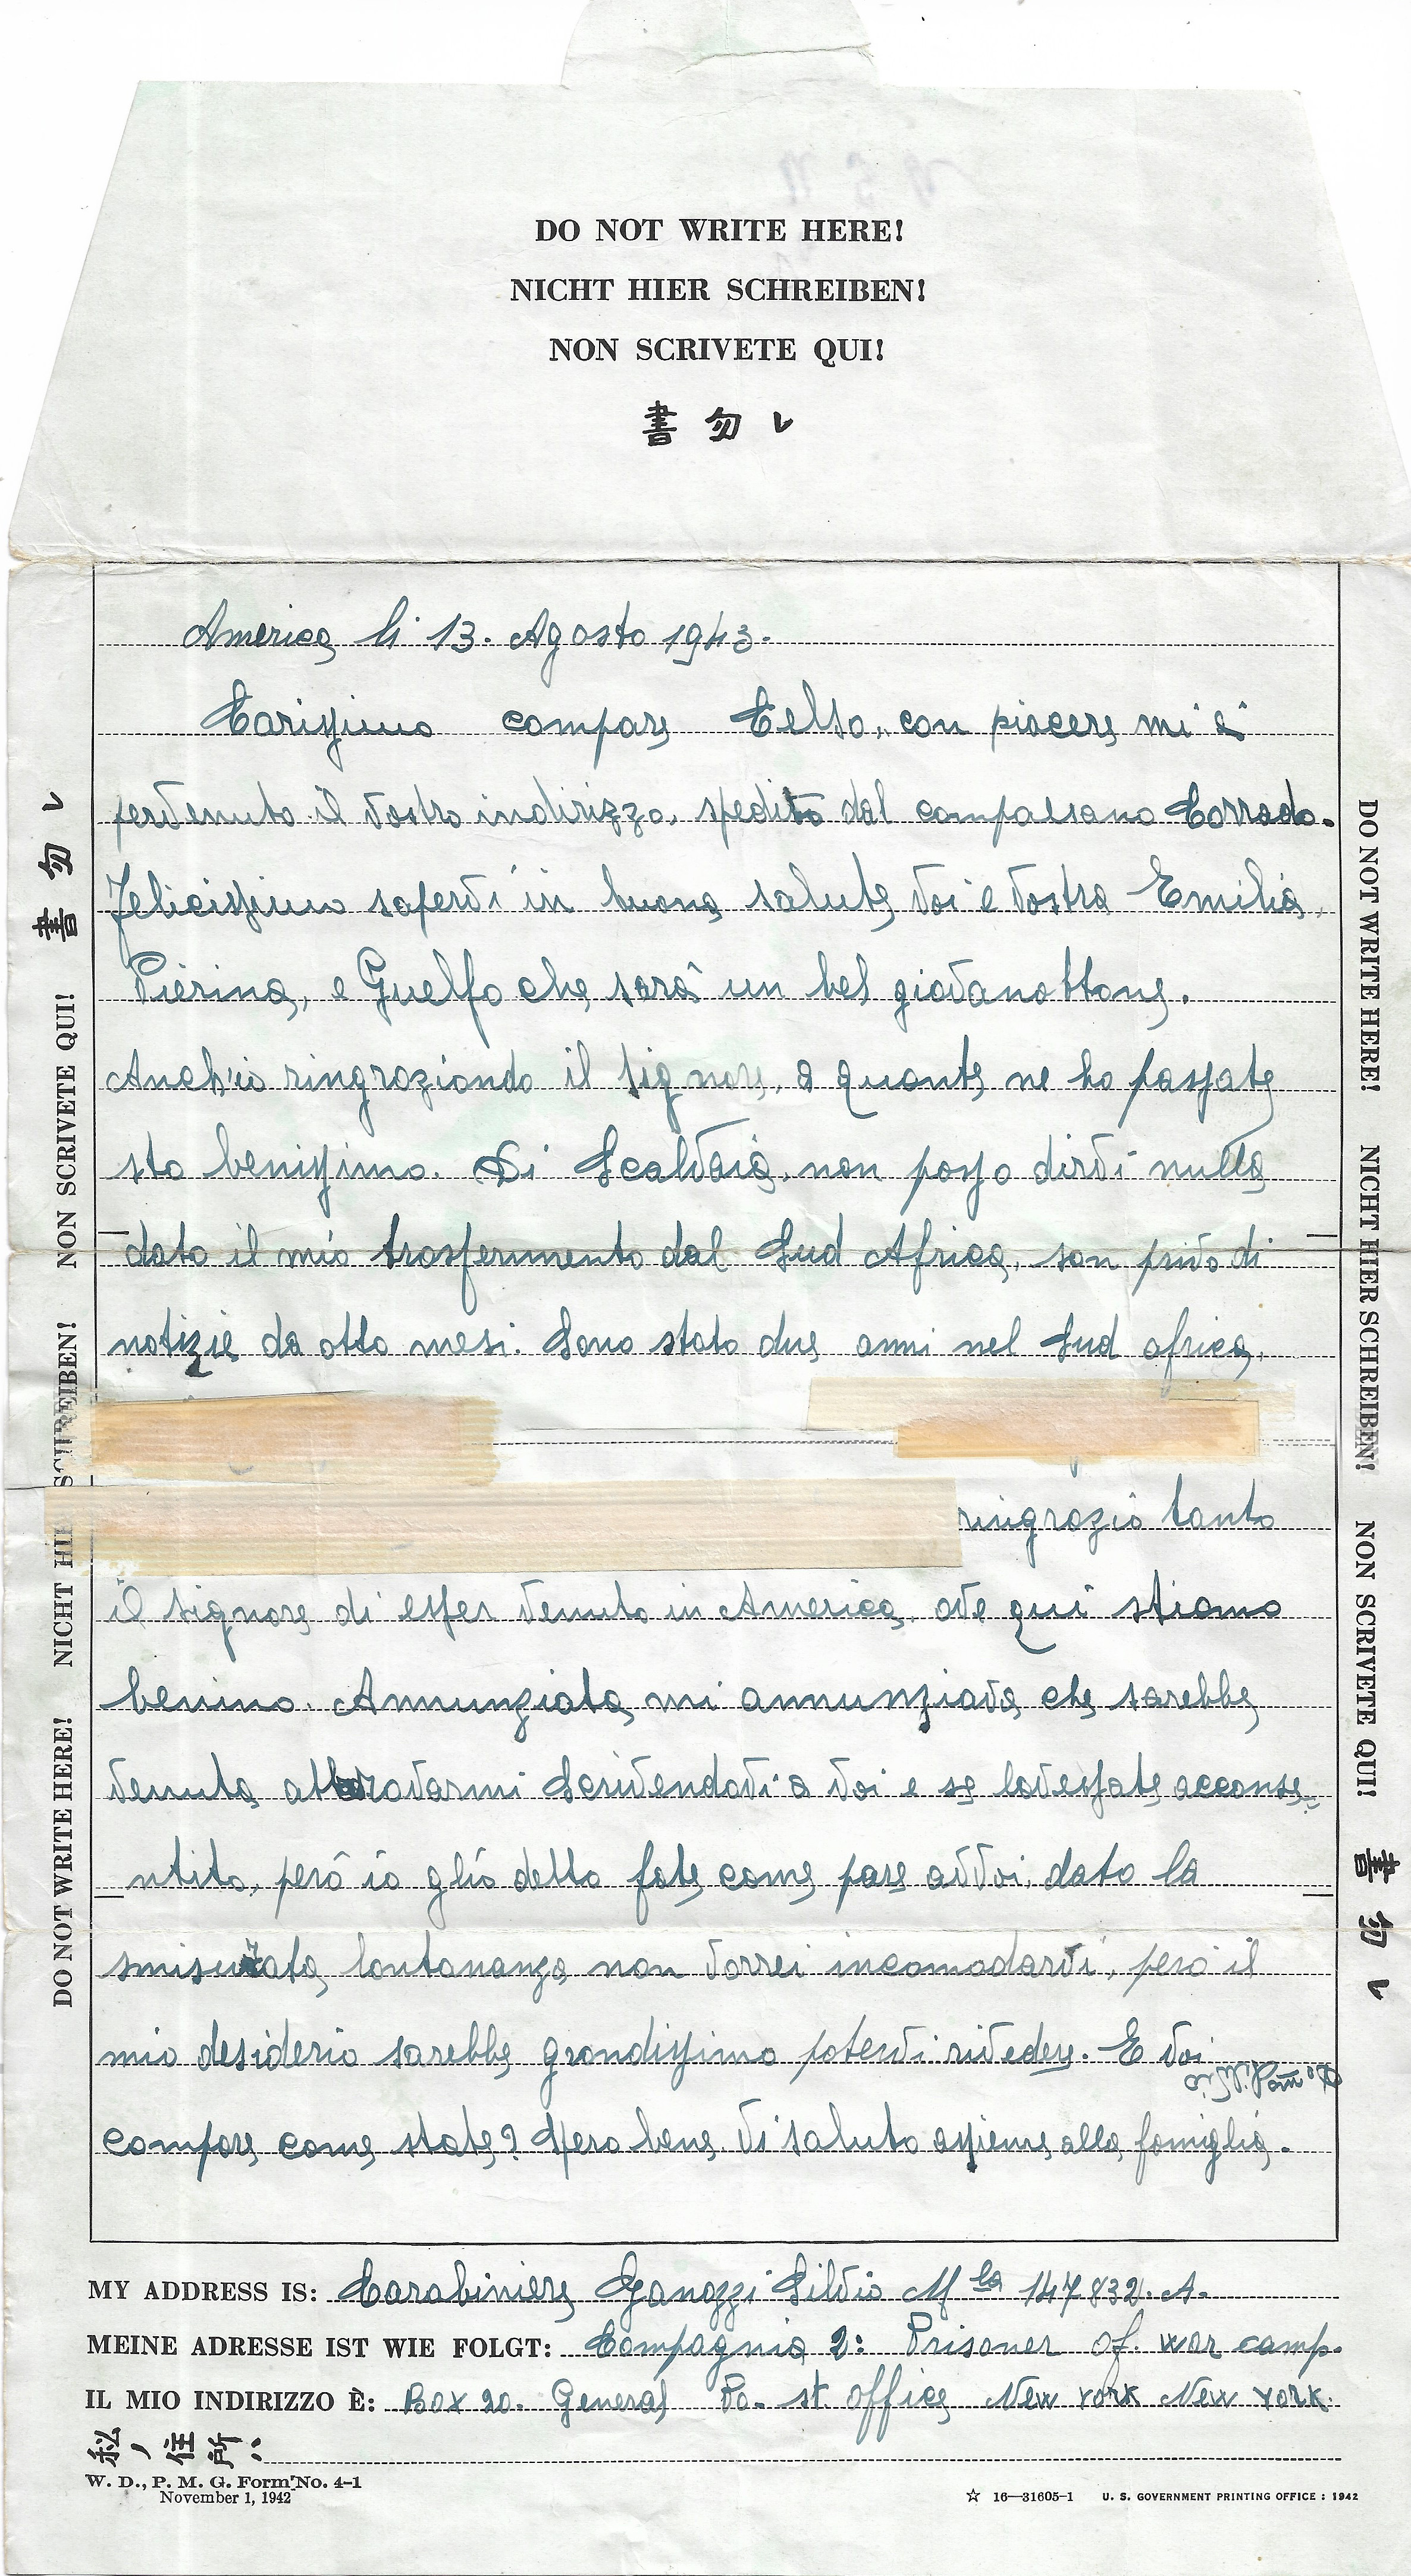 DO NOT WRITE HERE!
NICHT HIER SCHREIBEN!
NON SCRIVETE QUI!
書 勿 レ
America li 13. Agosto 1943.
Carissimo compare Celso, con piacere mi è
pervenuto il vostro indirizzo, spedito dal compaesano Corrado.
Felicissimo sapervi in buona salute voi e vostra Emilia,
Pierina, e Guelfo che sarà un bel giovanottone.
Anch'io ringraziando il signore, a quante ne ho passate
sto benissimo. Di Scalvaia, non posso dirvi nulla
dato il mio trasferimento dal Sud Africa, son privo di
notizie da otto mesi. Sono stato due anni nel Sud africa,
ringrazio tanto
il signore di esser venuto in America, ove qui stiamo
benino. Annunziata, mi annunziava che sarebbe
venuta attrovarmi scrivendovi a voi e se lavessate acconse=
ntito, però io gliò detto fate come pare avvoi, dato la
smisurata, lontananza non vorrei incomodarvi, però il
mio desiderio sarebbe grandissimo potervi rivedere. E voi
compare come state? Spero bene. Vi saluto assieme alla famiglia.
MY ADDRESS IS: Carabiniere Ganozzi Silvio Mla 147832. A.
MEINE ADRESSE IST WIE FOLGT: Compagnia 2: Prisoner of. war camp.
IL MIO INDIRIZZO È: Box 20. General Po- st. office New York New York.
私ノ住所ハ
W. D., P. M. G. Form No. 4-1
November 1, 1942
☆ 16—31605-1 U. S. GOVERNMENT PRINTING OFFICE : 1942
DO NOT WRITE HERE! NICHT HIE SCHREIBEN! NON SCRIVETE QUI! 書 勿 レ
DO NOT WRITE HERE! NICHT HIER SCHREIBEN! NON SCRIVETE QUI! 書 勿 レ